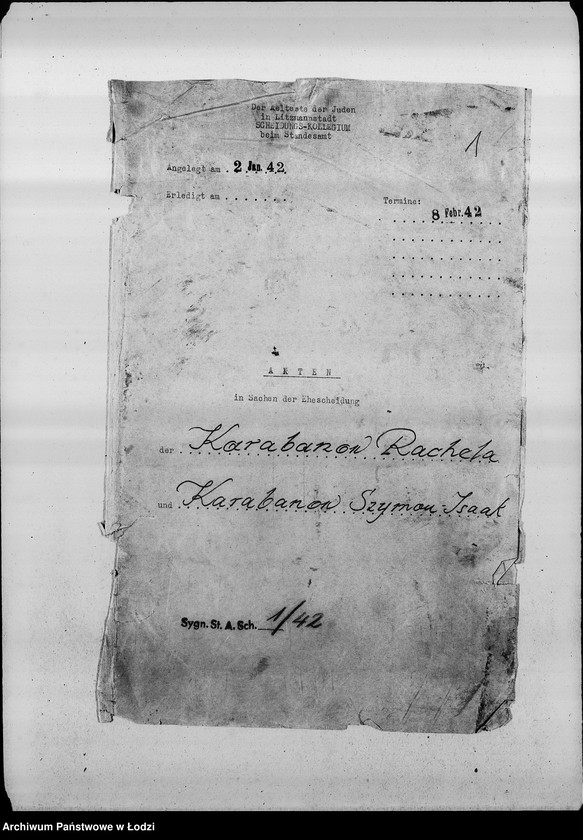 Der Aelteste der Juden
in Litzmannstadt
SCHEIDUNGS-KOLLEGIUM
beim Standesamt
1
Angelegt am . 2 Jan. 42.
Erledigt am . . . . . . .
Termine:
8 Febr. 42
A K T E N
in Sachen der Ehescheidung
der Karabanow Rachela
und Karabanow Szymon-Isaak
Sygn. St. A. Sch. 1/42
Archiwum Państwowe w Łodzi